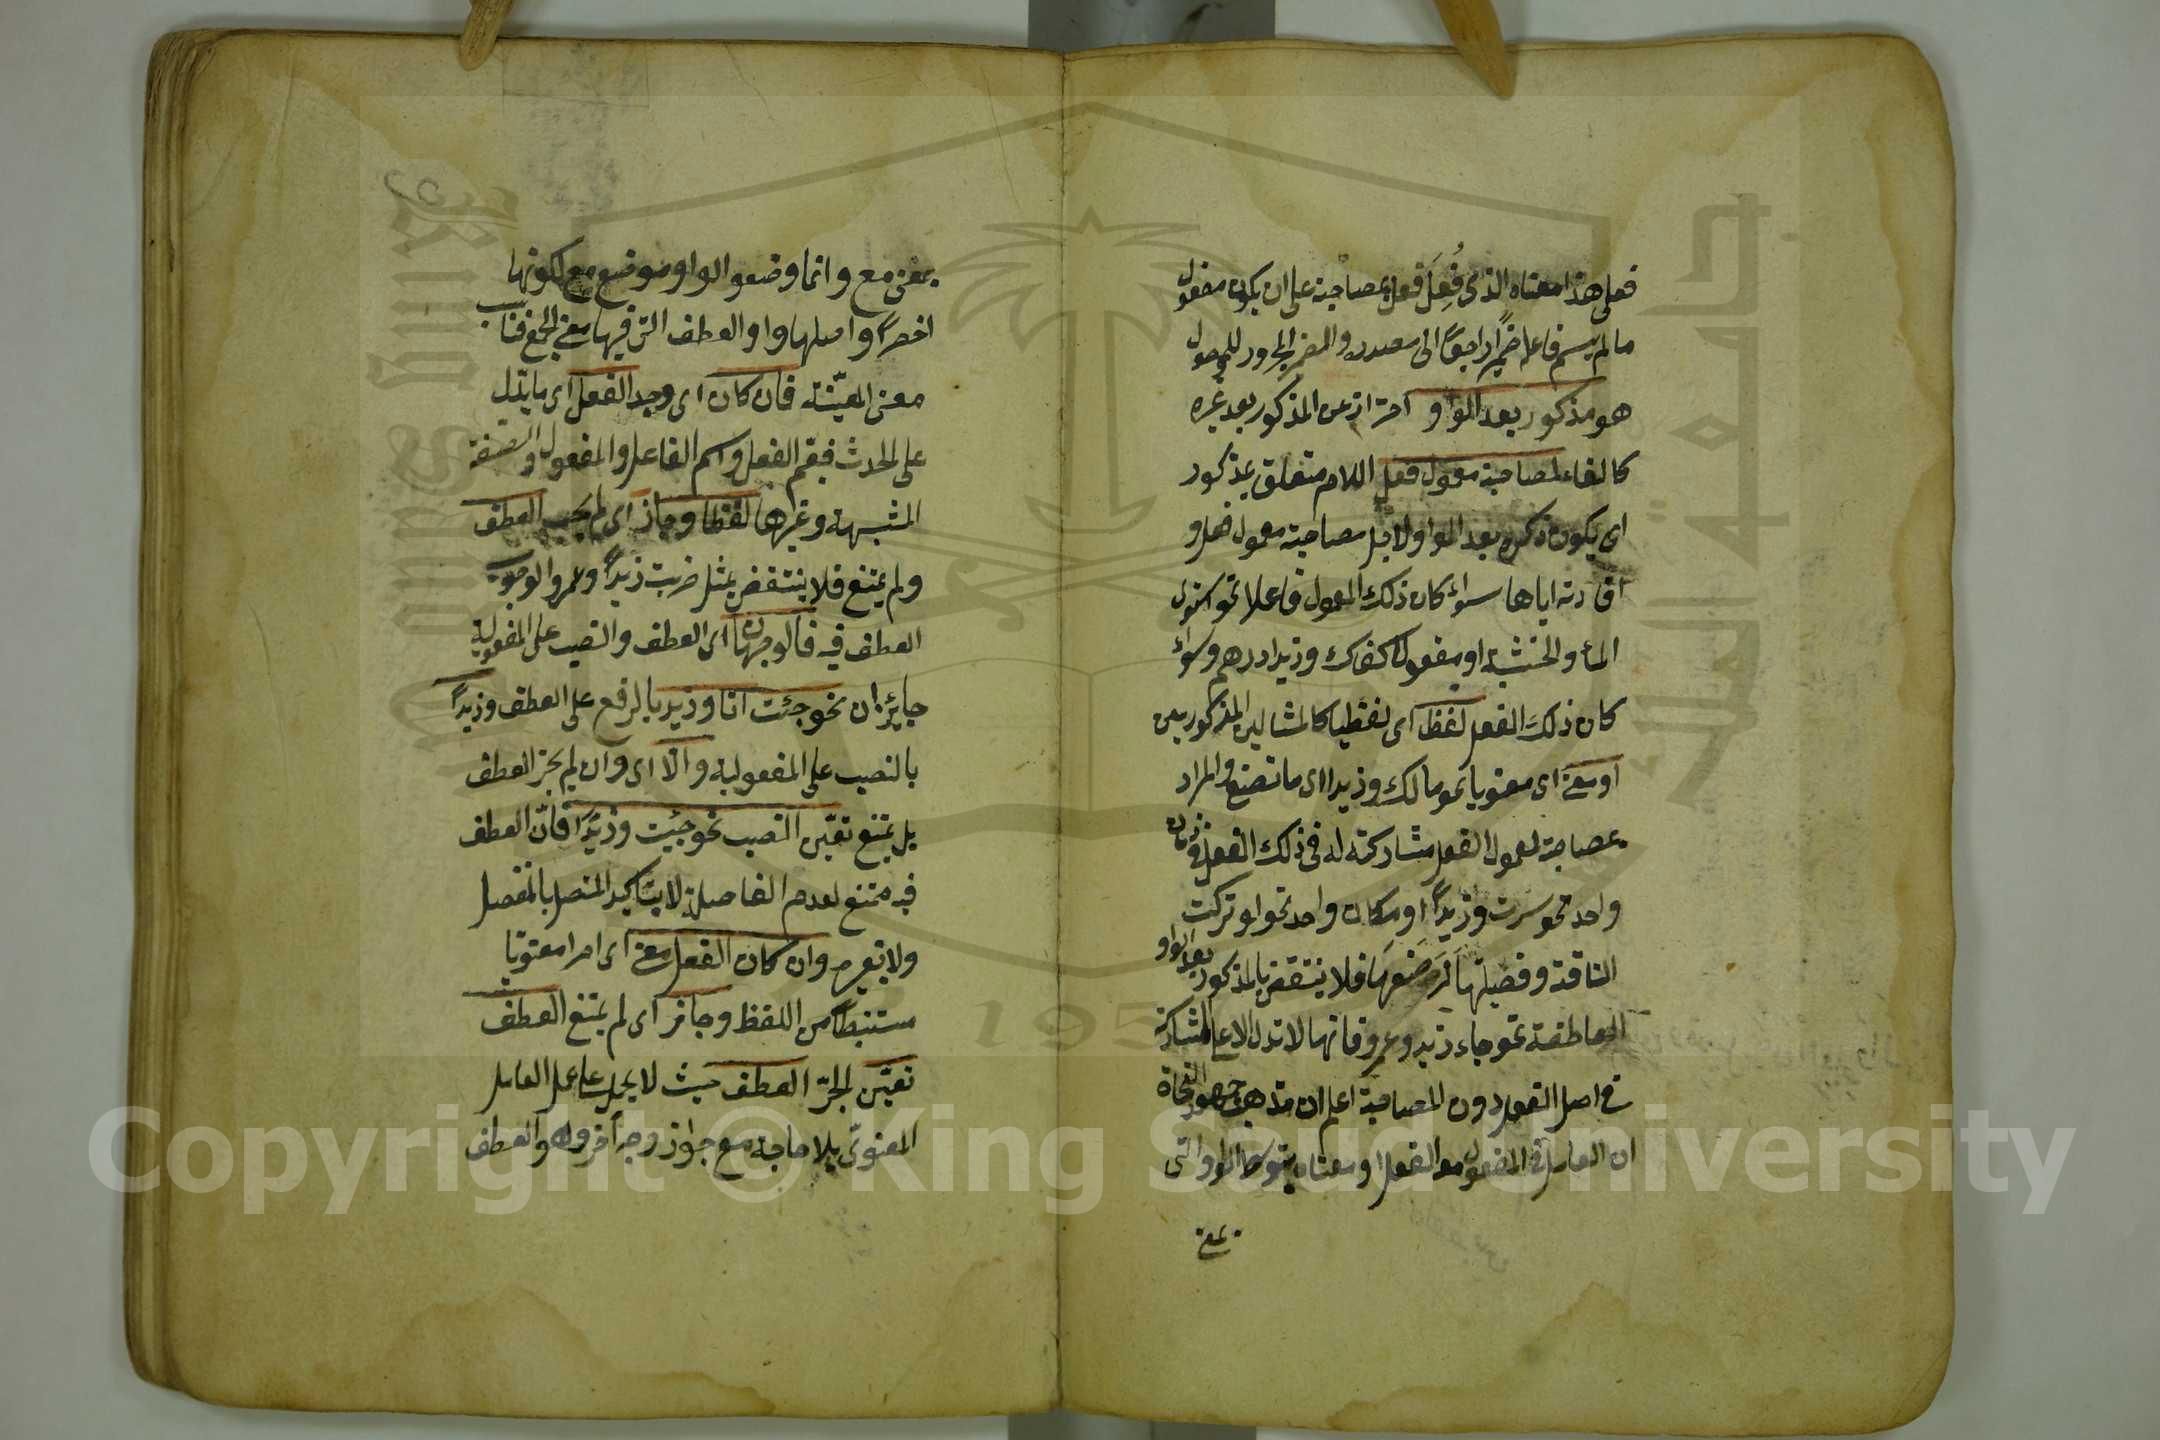 فعلى هذا معناه الذى فُعِلَ فعل بمصاحبة على ان يكون مفعول
ما لم يسم فاعله ضميرا راجعًا الى مصدره والضمير المجرور للموصول
هو مذكور بعد الواو احتراز عن المذكور بعد غيره
كالفاء لمصاحبة معمول فعل اللام متعلق بمذكور
اى يكون ذكره بعد الواو لاجل مصاحبة معمول فعل و
افادته اياها سواء كان ذلك المعمول فاعلا نحو استوى
الماء والخشبة او مفعولا كفاك وزيدا درهم وسواء
كان ذلك الفعل لفظا اى لفظيا كالمثالين المذكورين
او معنى اى معنويا نحو مالك وزيدا اى ما تصنع والمراد
بمصاحبة لمعمول الفعل مشاركته له فى ذلك الفعل فى زمان
واحد نحو سرت وزيدًا او مكان واحد نحو لو تركت
الناقة وفصيلتها لرضعها فلا ينتقض بالمذكور بعد الواو
العاطفة نحو جاء زيد وعمرو فانها لا تدل الا على المشاركة
فى اصل الفعل دون المصاحبة اعلم ان مذهب جمهور النحاة
ان العامل فى المفعول معه الفعل او معناه بتوسط الواو التى
بمعنى
بمعنى مع وانما وضعوا الواو موضع مع لكونها
اخصر واصلها واو العطف التى فيها معنى الجمع فناسب
معنى المعيّة فان كان اى وجد الفعل اى ما يدل
على الحدث فيعم الفعل واسم الفاعل والمفعول والصفة
المشبهة وغيرها لفظا وجاز اى لم يجب العطف
ولم يمتنع فلا ينتقض بمثل ضربت زيدًا وعمروا لوجوب
العطف فيه فالوجهان اى العطف والنصب على المفعولية
جايزان نحو جئت انا وزيد بالرفع على العطف وزيدًا
بالنصب على المفعولية والّا اى وان لم يجز العطف
بل يمتنع تعيّن النصب نحو جئت وزيدًا فانّ العطف
فيه ممتنع لعدم الفاصلة لا بتاكيد المتصل بالمنفصل
ولا بغيره وان كان الفعل معنى اى امرا معنويا
مستنبطا من اللفظ وجاز اى لم يمتنع العطف
تعيّن العطف حيث لا يحمل على عمل العامل
المعنوىّ بلا حاجة مع جواز وجه آخر وهو العطف
Copyright © King Saud University
جامعة الملك سعود
195